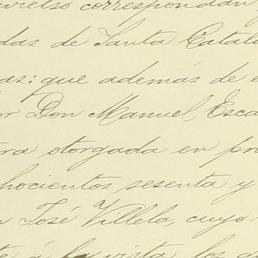 correspondan
das de Santa Catal
as: que además de e
or Don Manuel Esca
ra otorgada en pr
hocientos sesenta y
n José Villela, cuyo
te á la vista los